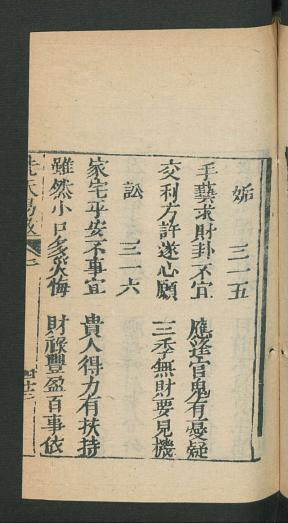 姤　三一五
手藝求財卦不宜　應逢官鬼有憂疑
交利方許遂心願　三季無財要見機
訟　三一六
家宅平安不事宜　貴人得力有扶持
雖然小口多災悔　財祿豐盈百事依
先天易數